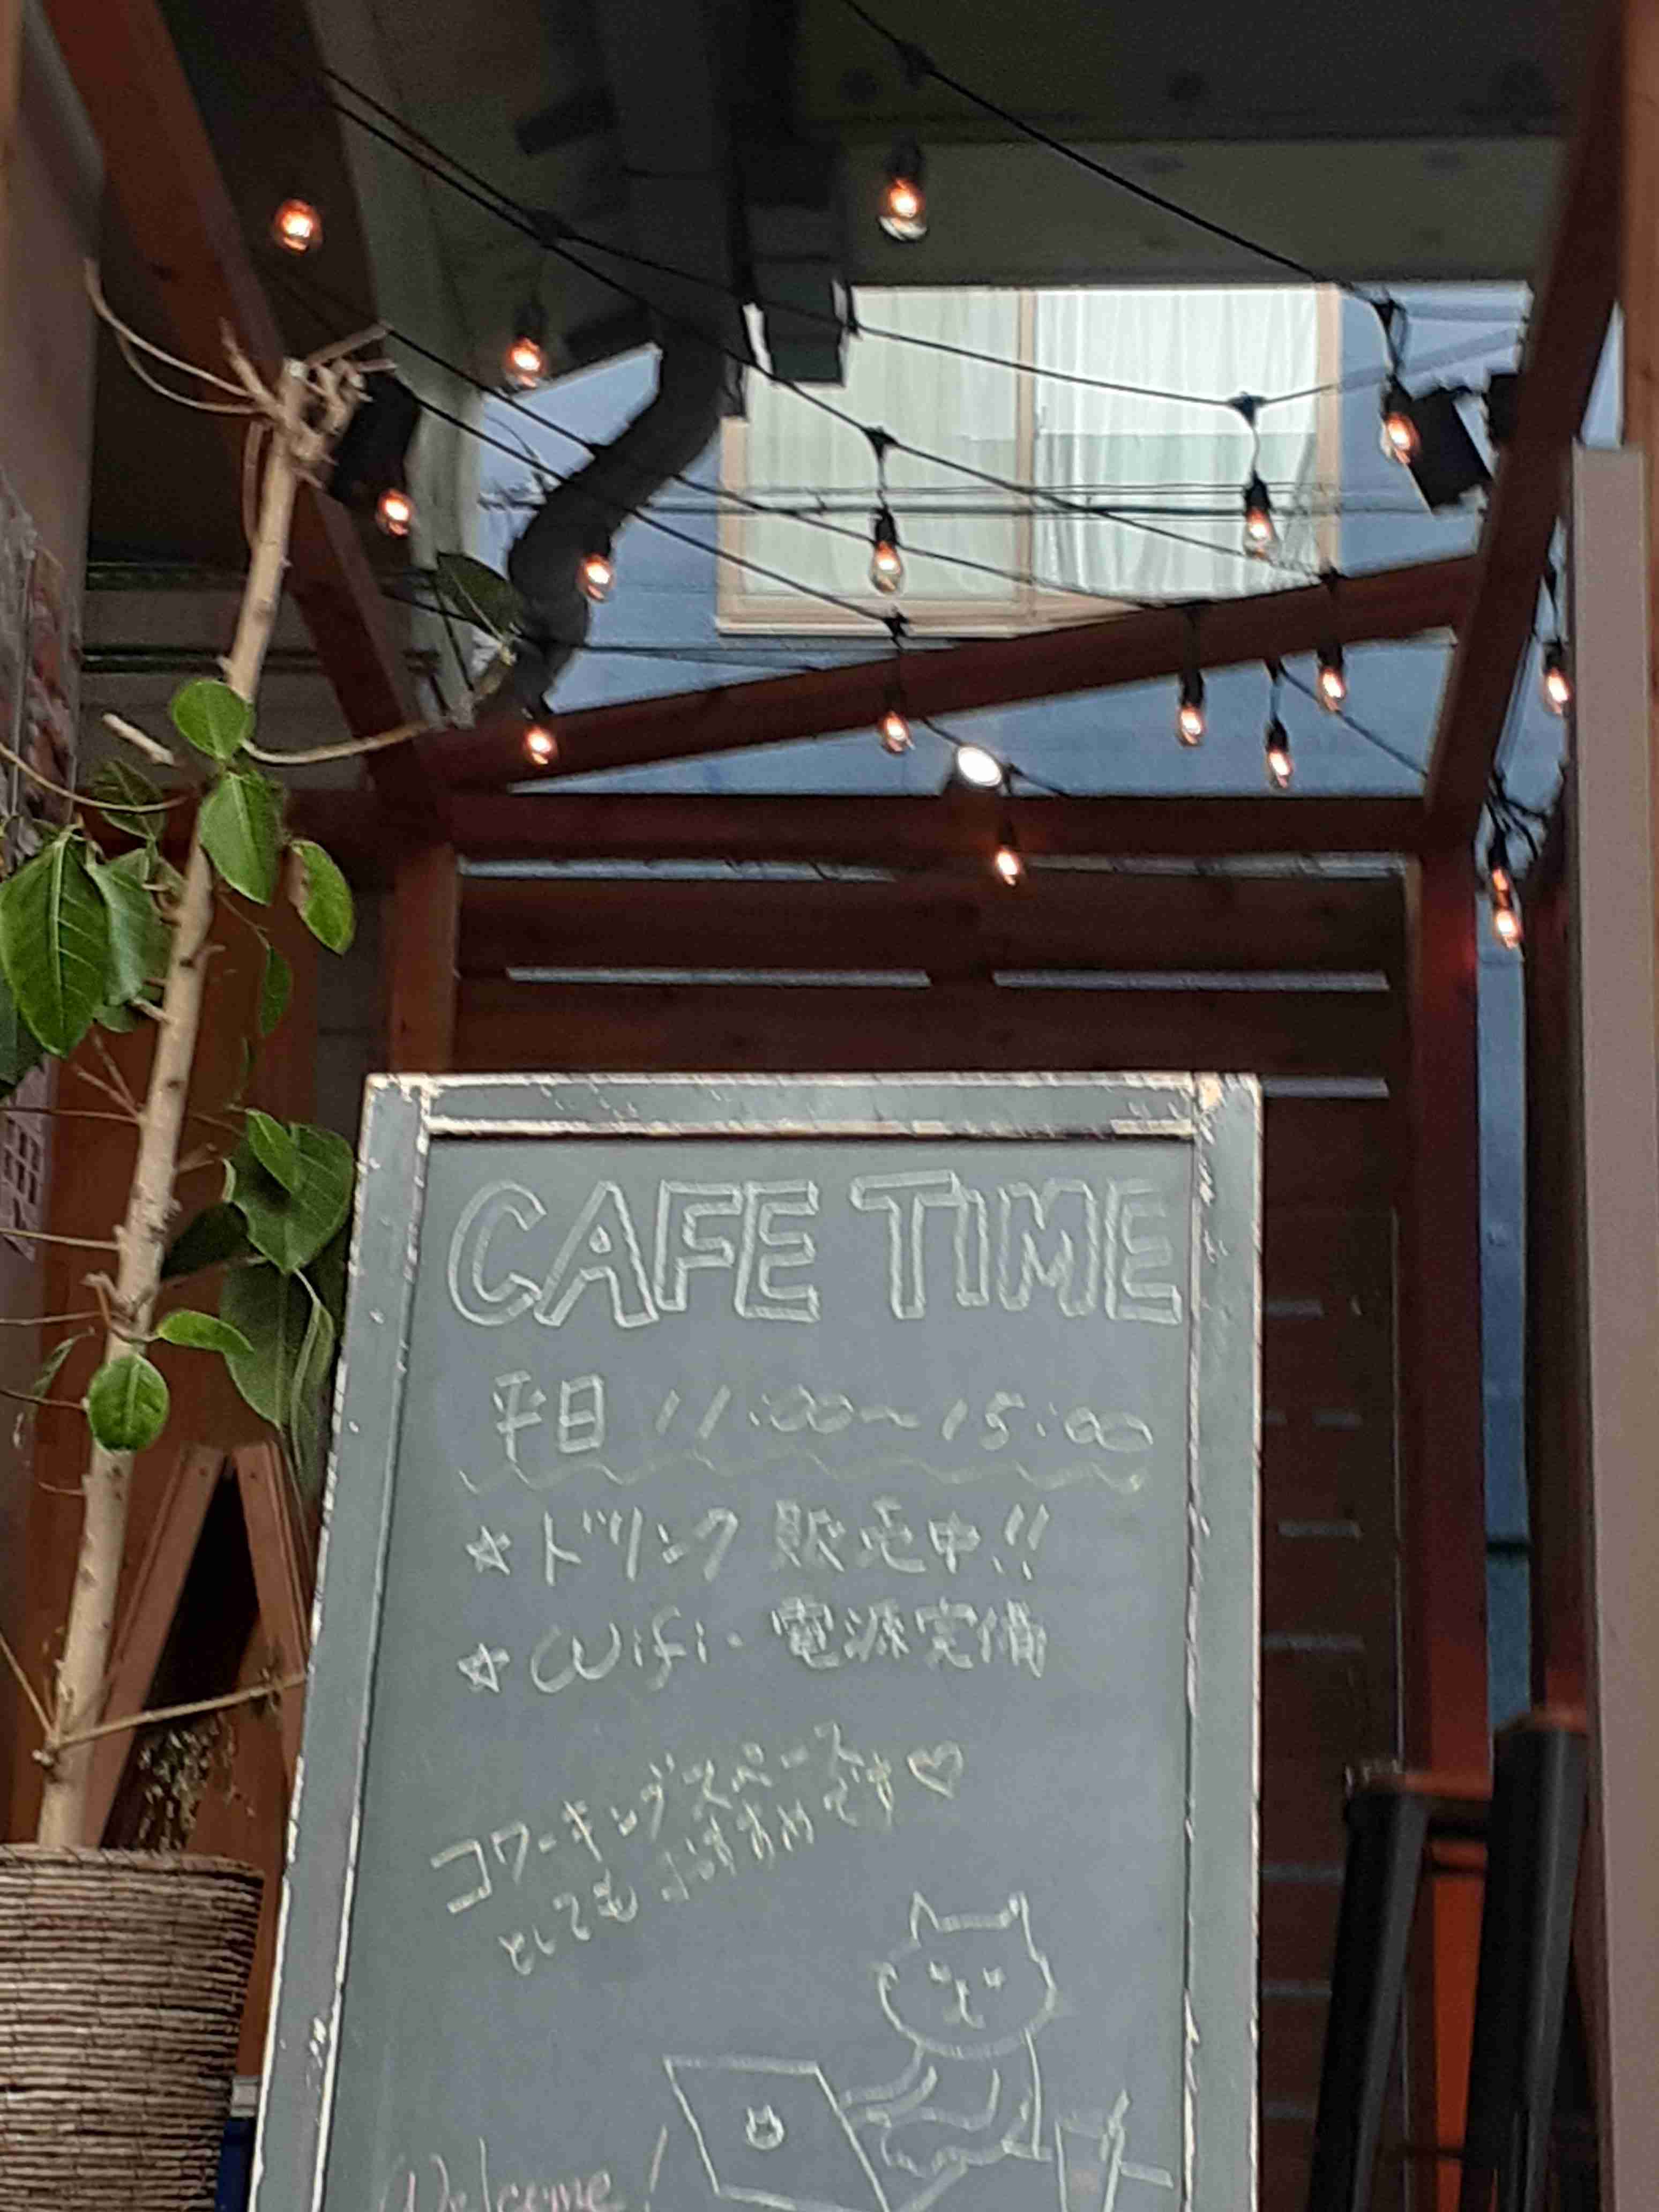 CAFE TIME
平日 11:00〜15:00
☆ドリンク 販売中!!
☆Wifi・電源完備
コワーキングスペース
としてもおすすめです♡
Welcome!